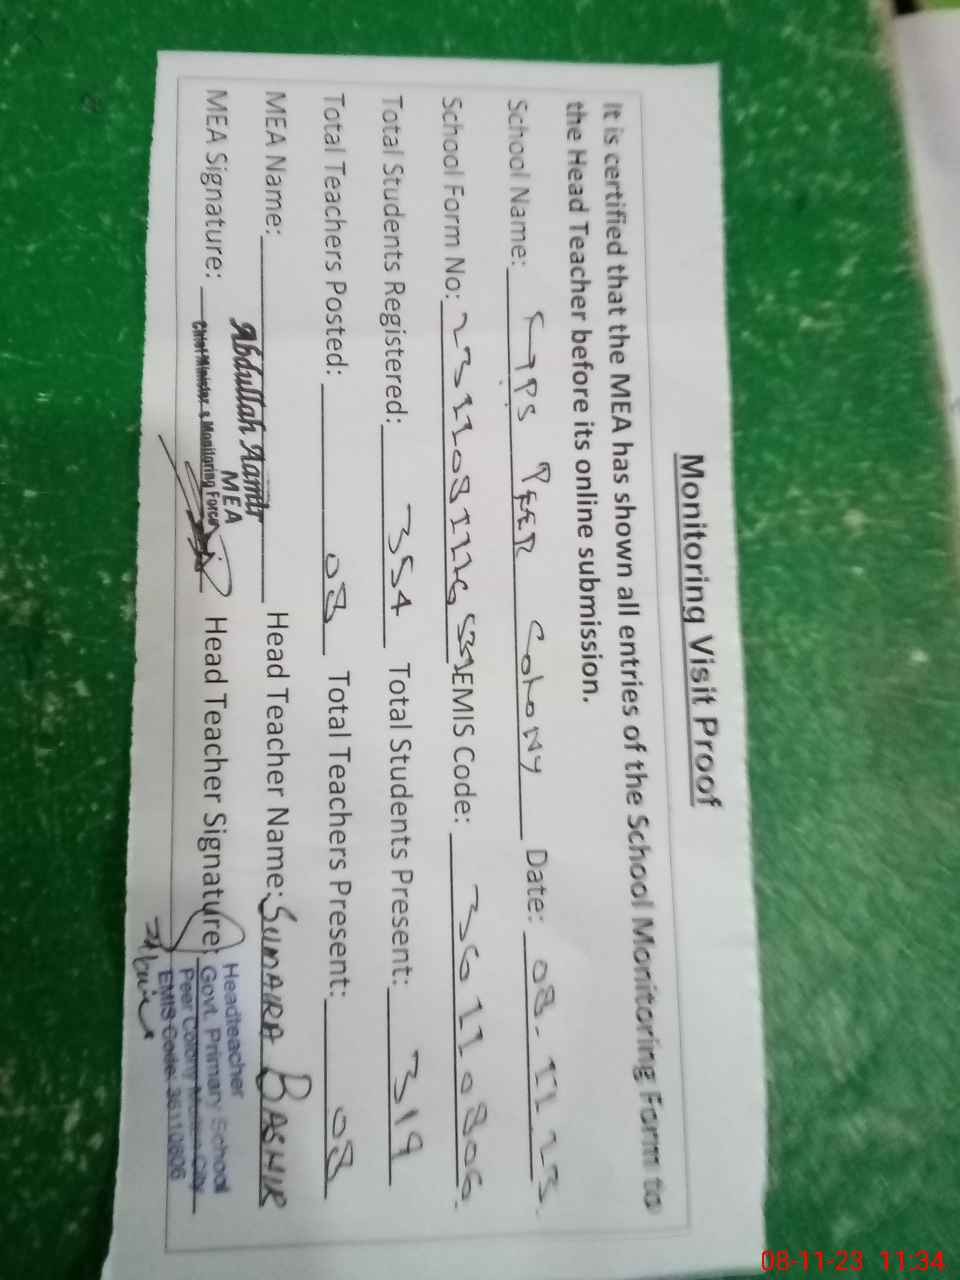 Monitoring Visit Proof
It is certified that the MEA has shown all entries of the School Monitoring Form to
the Head Teacher before its online submission.
School Name: GPS PEER COLONY Date: 08-11-23.
School Form No: EMIS Code: 36110806.
Total Students Registered: 354 Total Students Present: 319
Total Teachers Posted: 08 Total Teachers Present: 08
MEA Name: Abdullah Aamir Head Teacher Name: SUMAIRA BASHIR
MEA
MEA Signature: Chief Minister's Monitoring Force Head Teacher Signature:
Headteacher
Govt. Primary School
Peer Colony City
EMIS Code: 36110806
08-11-23 11:34